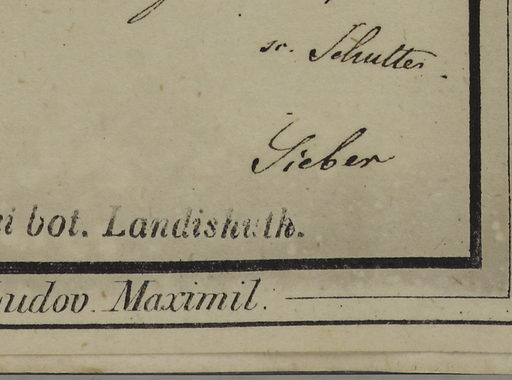 sc. Schultes.
Sieber
i bot. Landishuth.
udov. Maximil.